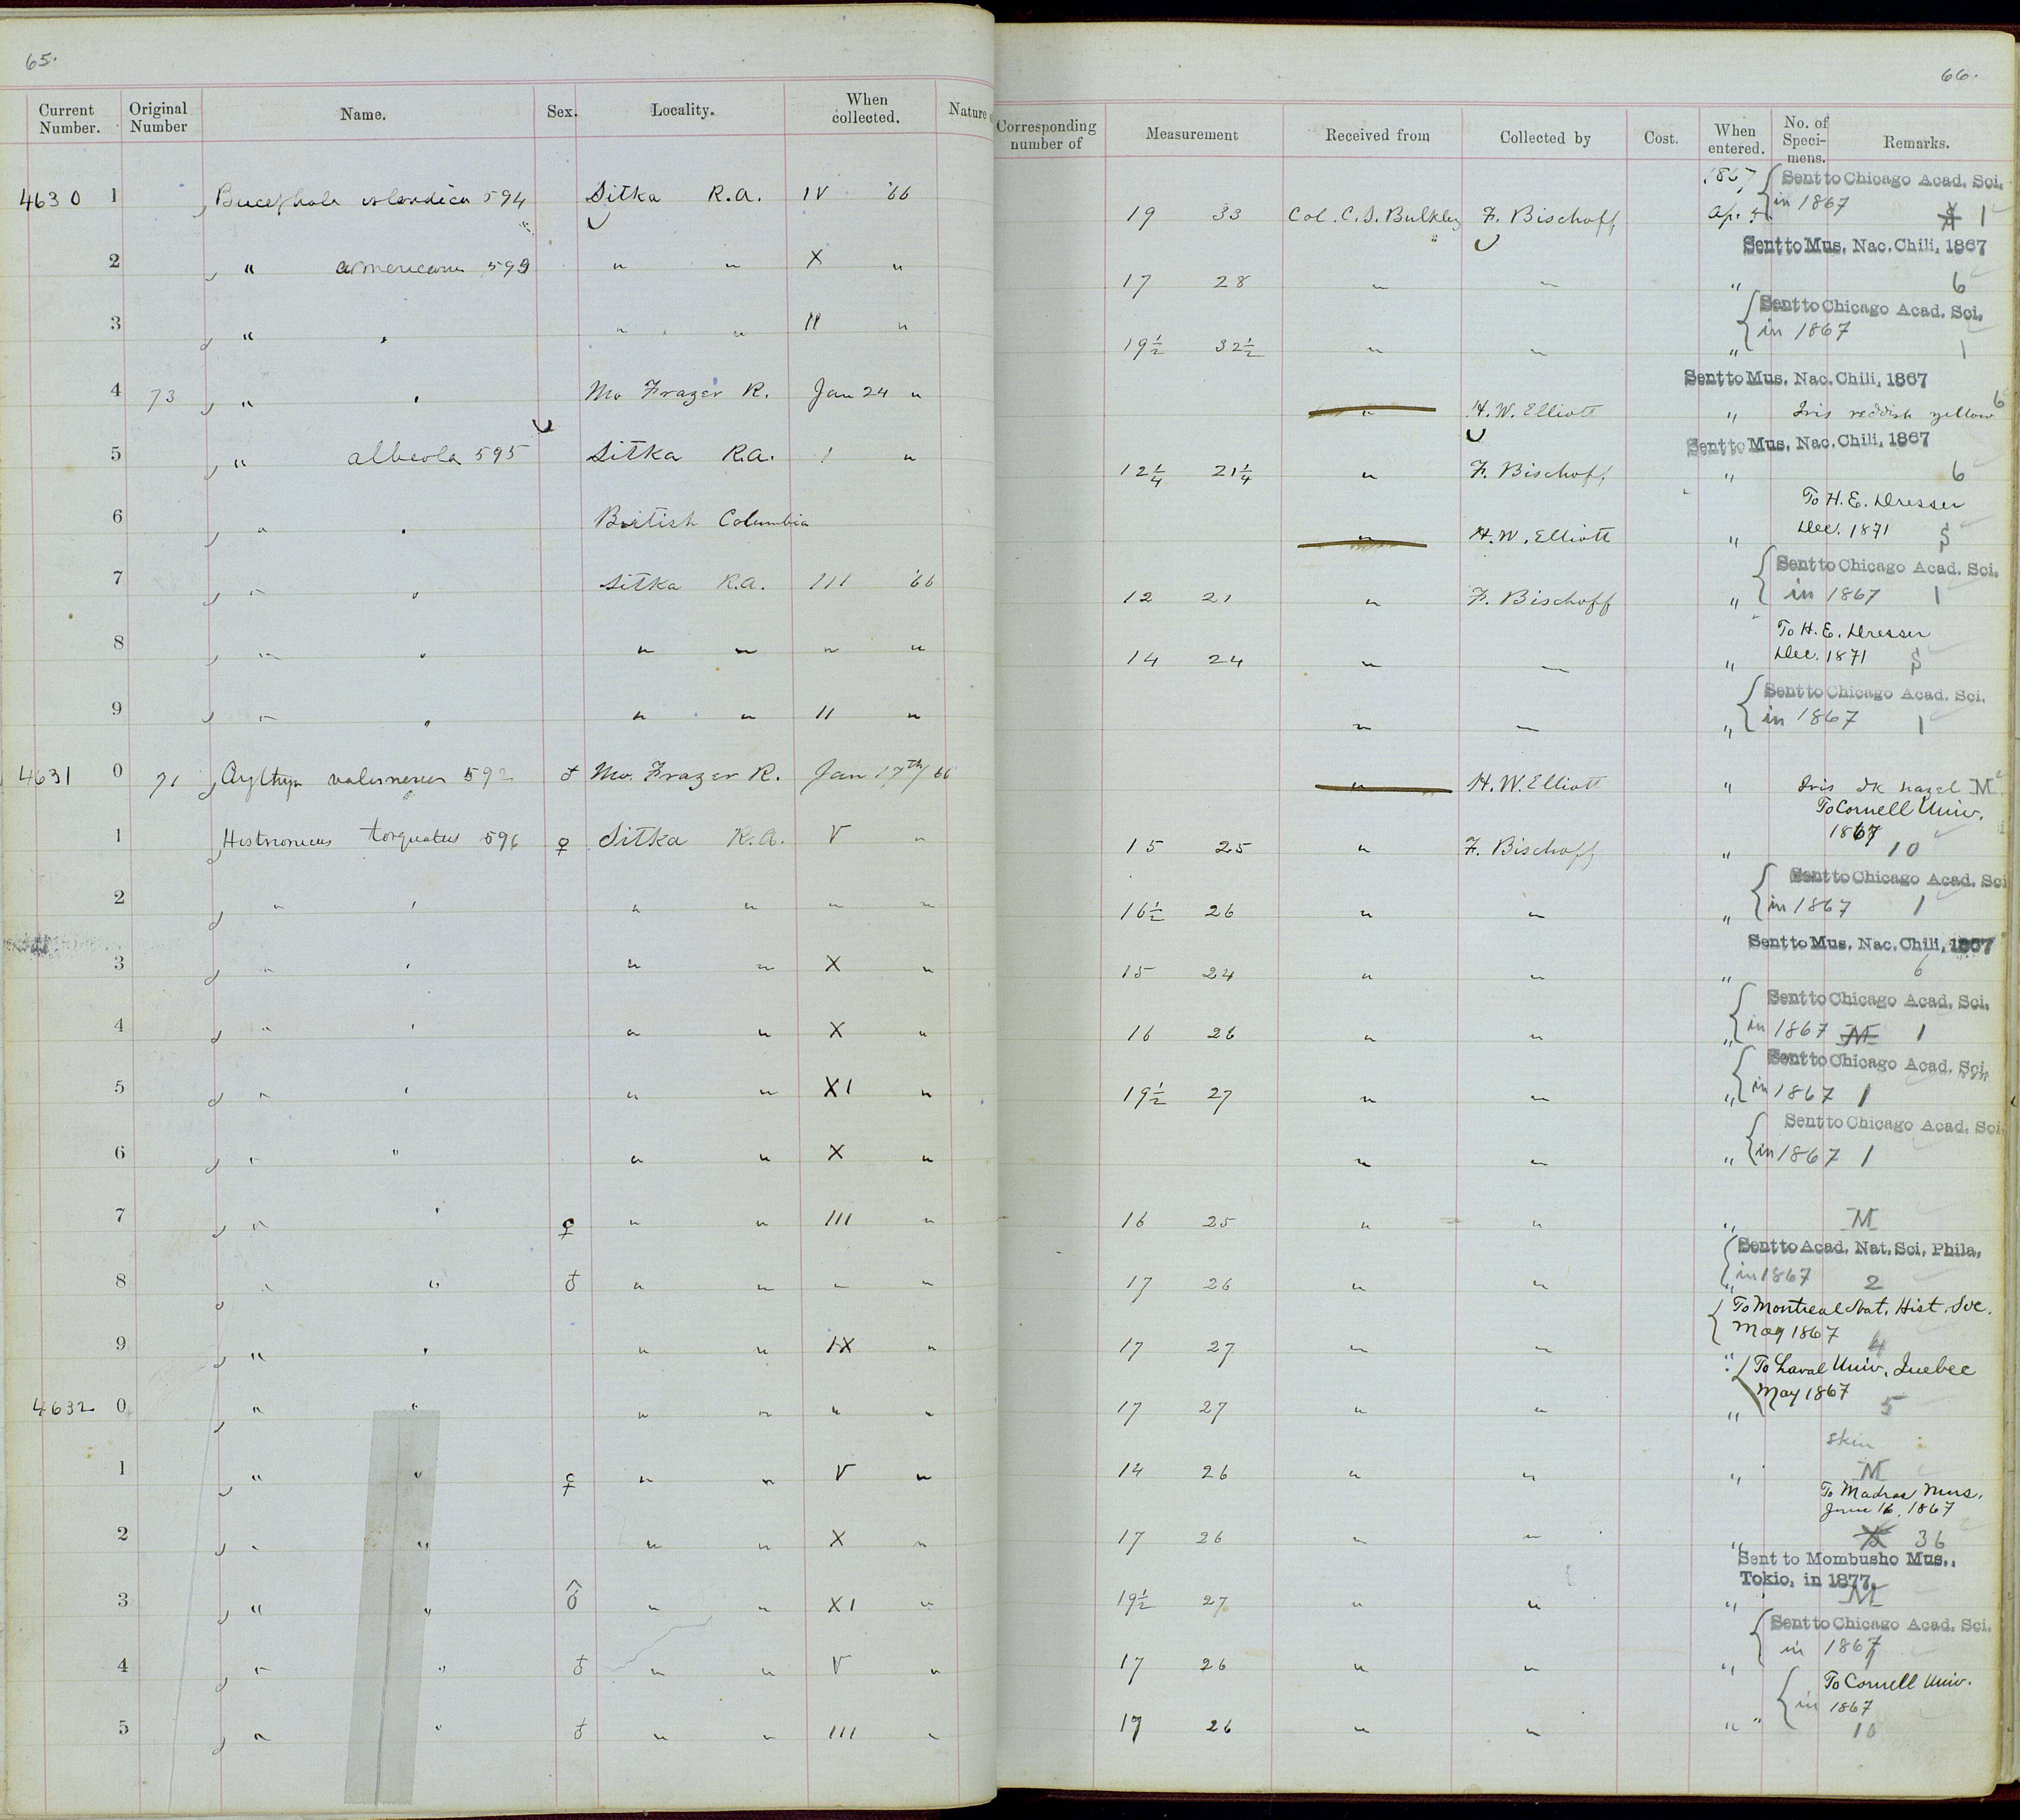 65.
Current Number. Original Number Name. Sex. Locality. When collected. Nature
4630 1 Bucephala islandica 594 Sitka R.A. IV '66
2 " americana 593 " " X "
3 " " " " II "
4 73 " " Mo Frazer R. Jan 24 "
5 " albeola 595 Sitka R.A. I "
6 " " British Columbia
7 " " Sitka R.A. III '66
8 " " " " " "
9 " " " " II "
4631 0 71 Aythya valisneria 592 ♂ Mo. Frazer R. Jan 17th/66
1 Histrionicus torquatus 596 ♀ Sitka R.A. V "
2 " " " " " "
3 " " " " X "
4 " " " " X "
5 " " " " XI "
6 " " " " X "
7 " " ♀ " " III "
8 " " ♂ " " " "
9 " " " " IX "
4632 0 " " " " " "
1 " " ♀ " " V "
2 " " " " X "
3 " " ♂ " " XI "
4 " " ♂ " " V "
5 " " ♂ " " III "
66.
Corresponding number of Measurement Received from Collected by Cost. When entered. No. of Speci-mens. Remarks.
1867 Sent to Chicago Acad. Sci.
in 1867
19 33 Col. C. S. Bulkley F. Bischoff Ap. 5 1
Sent to Mus. Nac. Chili, 1867
17 28 " " " 6
Sent to Chicago Acad. Sci.
in 1867
19½ 32½ " " " 1
Sent to Mus. Nac. Chili, 1867
" H. W. Elliott " Iris reddish yellow 6
Sent to Mus. Nac. Chili, 1867
12¼ 21¼ " F. Bischoff " 6
To H. E. Dresser
Dec. 1871
" H. W. Elliott "
Sent to Chicago Acad. Sci.
in 1867 1
12 21 " F. Bischoff "
To H. E. Dresser
Dec. 1871
14 24 " " "
Sent to Chicago Acad. Sci.
in 1867 1
" " "
" H. W. Elliott " Iris dk hazel M
To Cornell Univ.
1867
15 25 " F. Bischoff " 10
Sent to Chicago Acad. Sci
in 1867 1
16½ 26 " " "
Sent to Mus. Nac. Chili, 1867
15 24 " " " 6
Sent to Chicago Acad. Sci.
in 1867 M 1
16 26 " " "
Sent to Chicago Acad. Sci.
in 1867 1
19½ 27 " " "
Sent to Chicago Acad. Sci.
in 1867 1
" " "
16 25 " " " M
Sent to Acad. Nat. Sci. Phila.
in 1867 2
17 26 " " "
To Montreal Nat. Hist. Soc.
May 1867 4
17 27 " " "
To Laval Univ. Quebec
May 1867
17 27 " " " 5
skin
14 26 " " " M
To Madras Mus.
June 16, 1867
17 26 " " " 36
Sent to Mombusho Mus.,
Tokio, in 1877.
19½ 27 " " " M
Sent to Chicago Acad. Sci.
in 1867
17 26 " " "
To Cornell Univ.
in 1867
17 26 " " " " 10